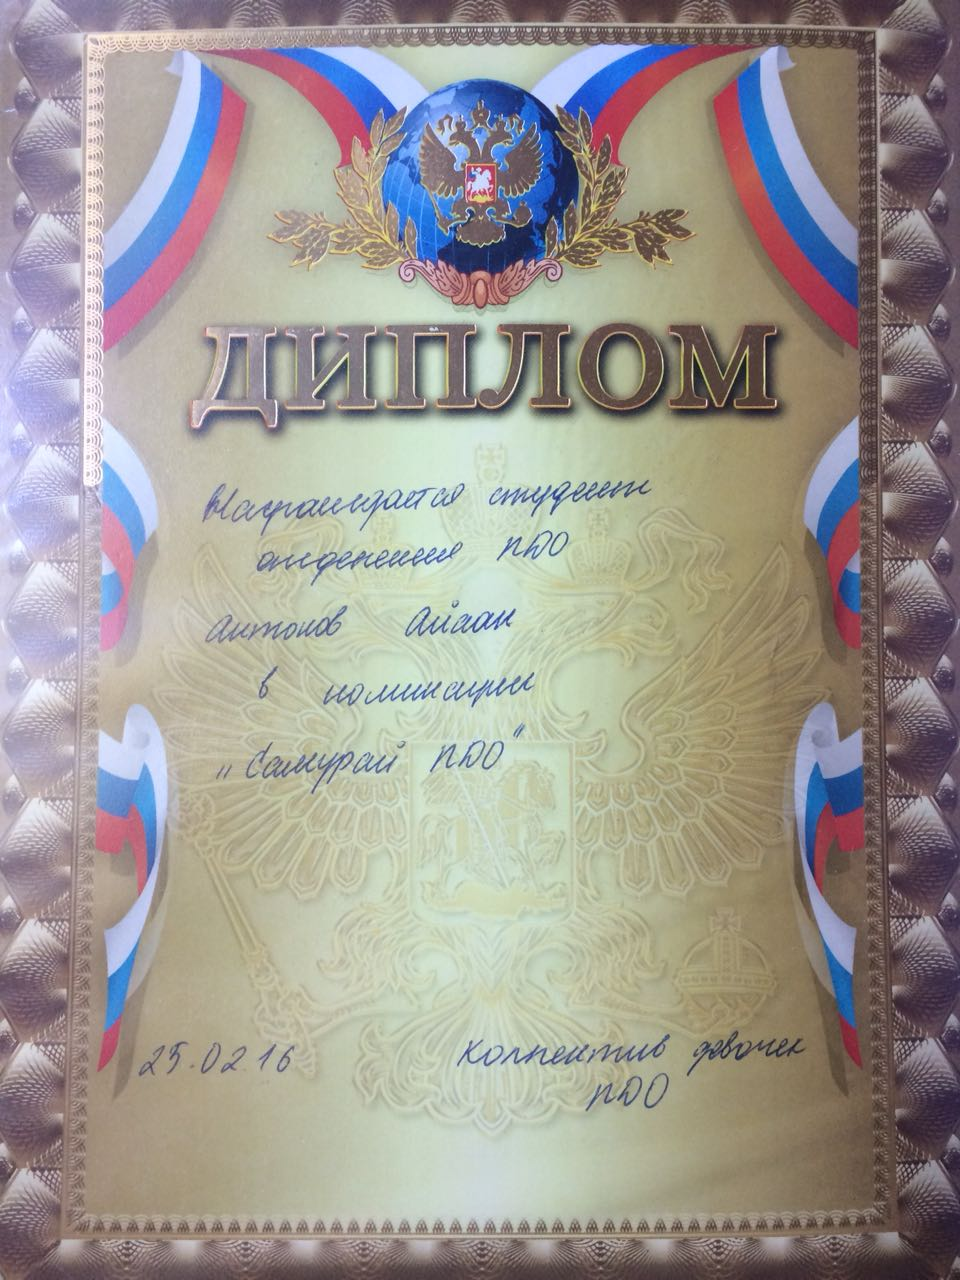 ДИПЛОМ
Награждается студент
отделения ПДО
Антонов Айаан
в номинации
„Самурай ПДО"
25.02.16
Коллектив девочек
ПДО